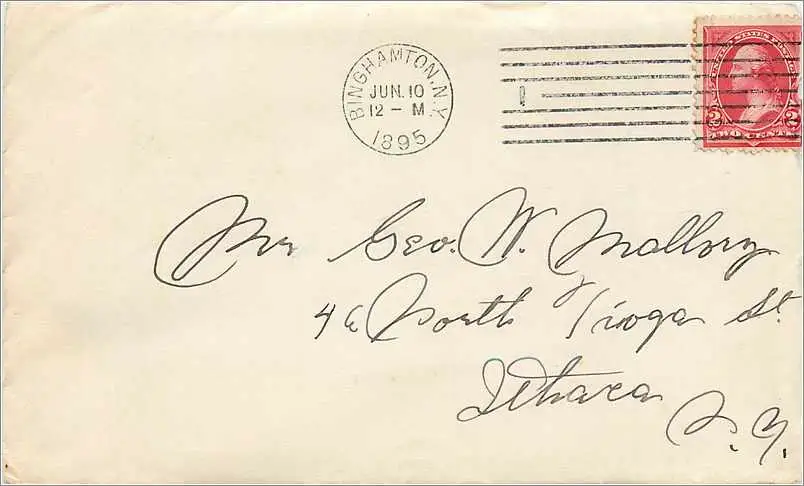 BINGHAMTON, N.Y.
JUN. 10
12 - M
1895
UNITED STATES POSTAGE
2 2
TWO CENTS
Mr Geo. W. Mallory
46 North Tioga St.
Ithaca
N.Y.